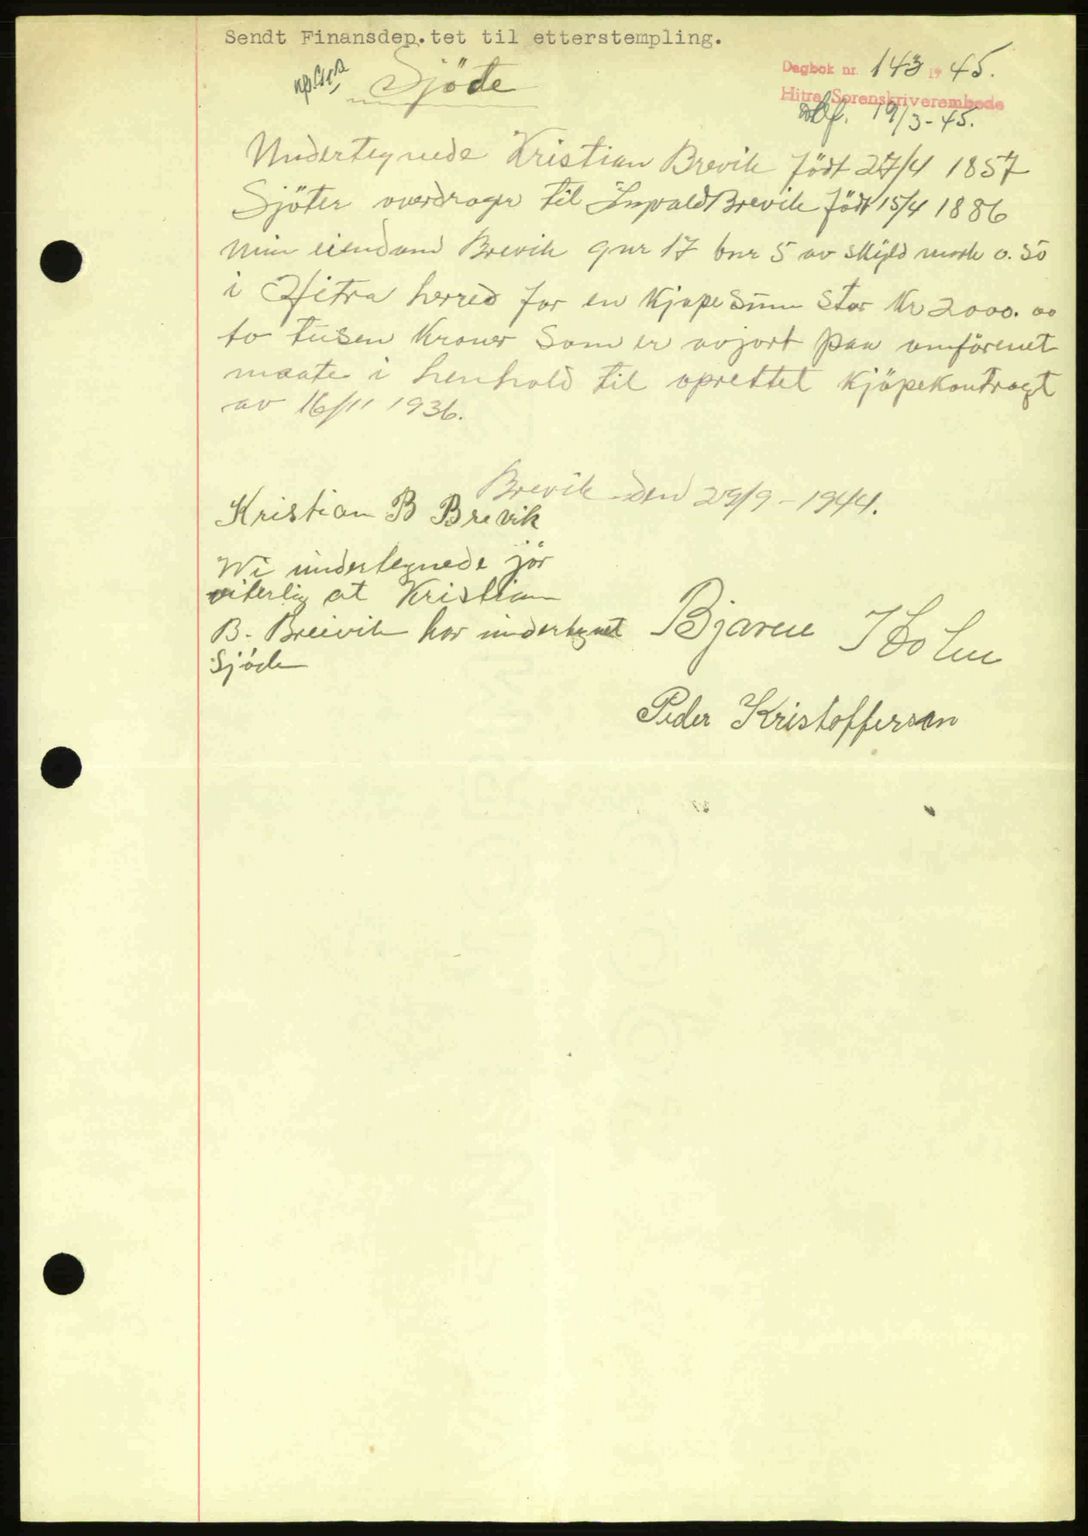 Sendt Finansdep.tet til etterstempling.
Dagbok nr. 143 19 45.
Hitra Sorenskriverembede
19/3-45.
Sjöde
Undertegnede Kristian Brevik födt 27/4 1857
Sjöter overdrager til Ingvald Brevik födt 15/4 1886
min eiendom Brevik gnr 17 bnr 5 av skyld mark 0.50
i Hitra herred for en kjøpesum stor Kr 2000.00
to tusen Kroner som er avjort paa omförenet
maate i henhold til oprettet kjöpekontragt
av 16/11 1936.
Brevik den 29/9-1944.
Kristian B Brevik
Wi undertegnede jör
viterlig at Kristian
B. Breivik har undertegnet
Sjöde
Bjarne Holm
Peder Kristoffersen